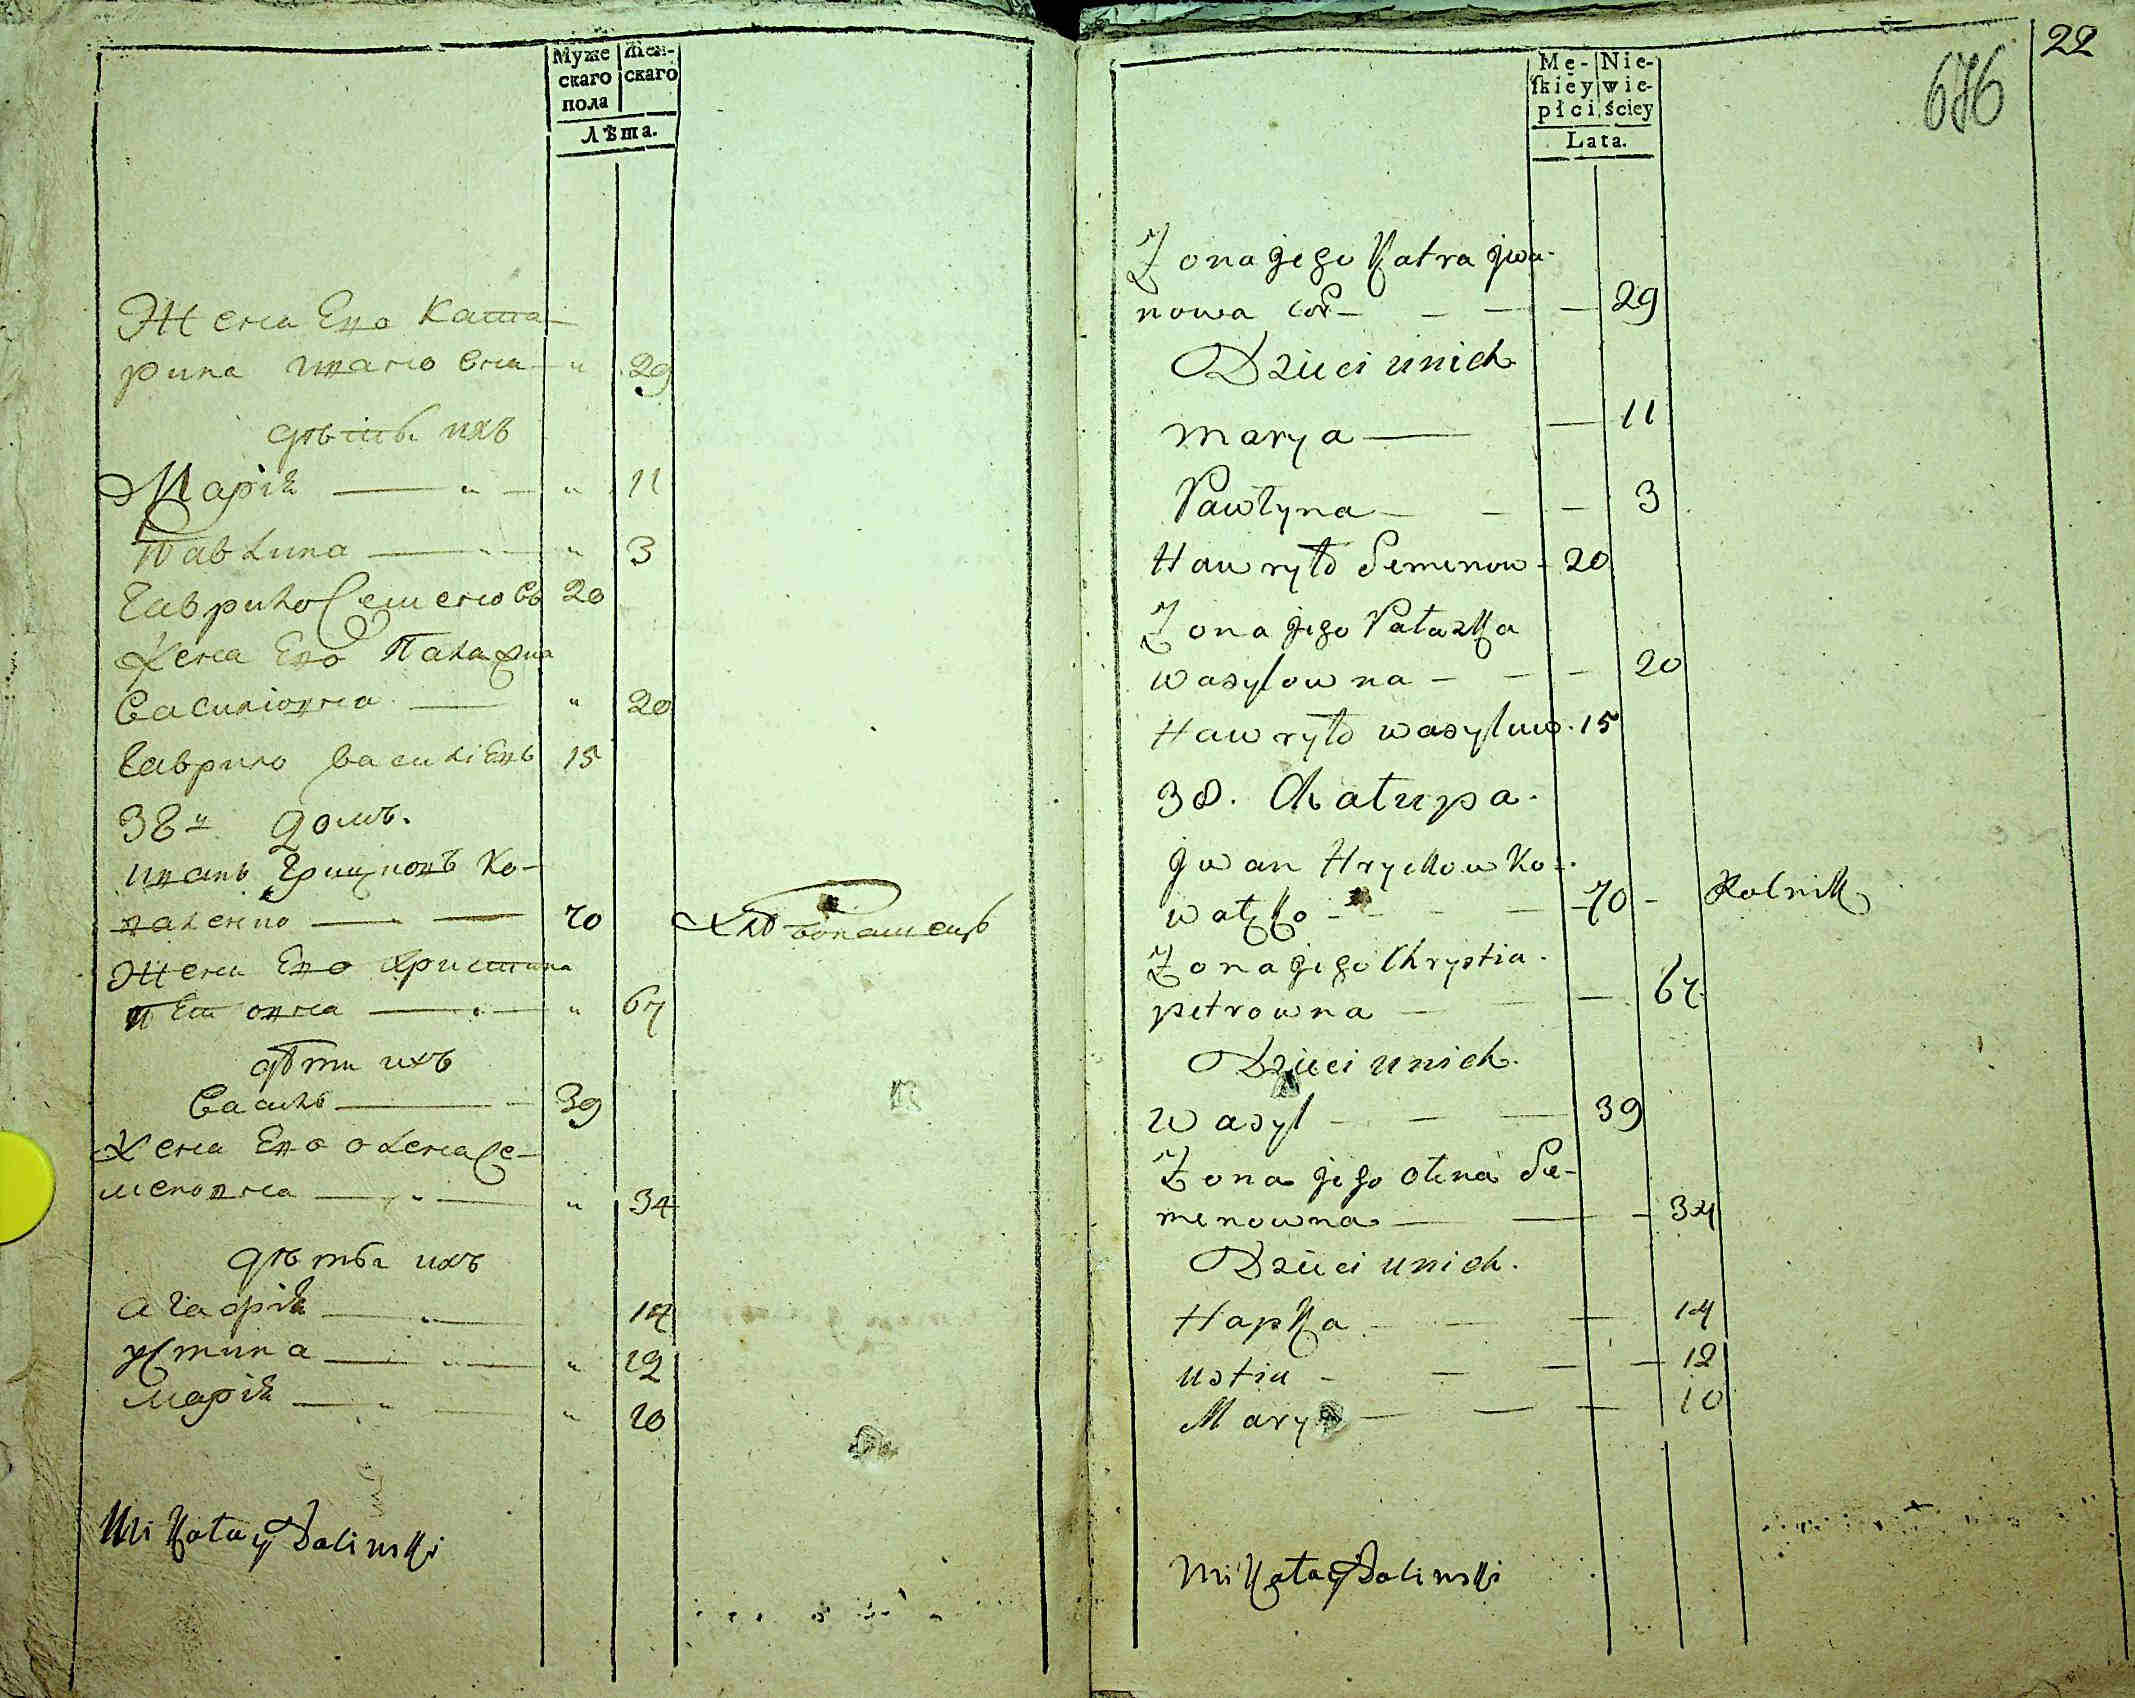 Муже
скаго
пола
Жен-
скаго
Лѣта.
Жена Его Кате-
рина ивановна — „ 29
дѣти ихъ
Марія — „ — „ 11
Павлина — „ 3
Гаврило Семеновъ 20
Жена Его Палажка
Василіовна — „ 20
Гаврило Василіевъ 15
38й домъ.
иванъ Грицковъ Ко-
валенко — 70 Хлебопашецъ
Жена Его Христина
петровна — „ 67
дѣти ихъ
Василь — 39
Жена Его олена Се-
меновна — „ 34
дѣти ихъ
агафія — 14
устина — „ 12
марія — „ 10
Mikołay Dalinski
22
676
Mę-
skiéy
płci
Nie-
wie-
ściey
Lata.
Zona jego Katra jwa-
nowa — — — 29
Dzieci u nich
marya — — 11
Pawłyna — — — 3
Hawryło Semenow - 20
Zona jego Pałazka
wasylowna — — — 20
Hawryło wasyluw. 15
38. Chatupa.
jwan Hryckow Ko-
wałko - - - — 70 - Rolnik
Zona jego Chrystia
petrowna — — — 67
Dzieci u nich.
wasyl — — — 39
Zona jego ołena Se-
menowna — — — 34
Dzieci u nich.
Hapka — — — 14
ustia - — — — 12
Marya — — — 10
Mikołay Dalinski